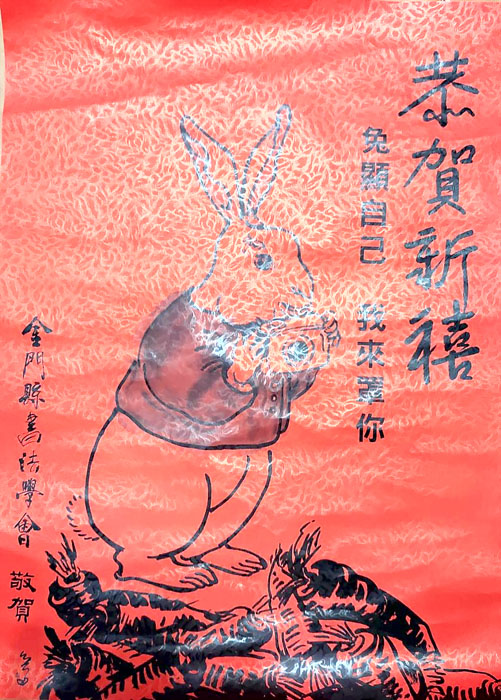 恭賀新禧
兔顯自己 我來罩你
金門縣書法學會 敬賀